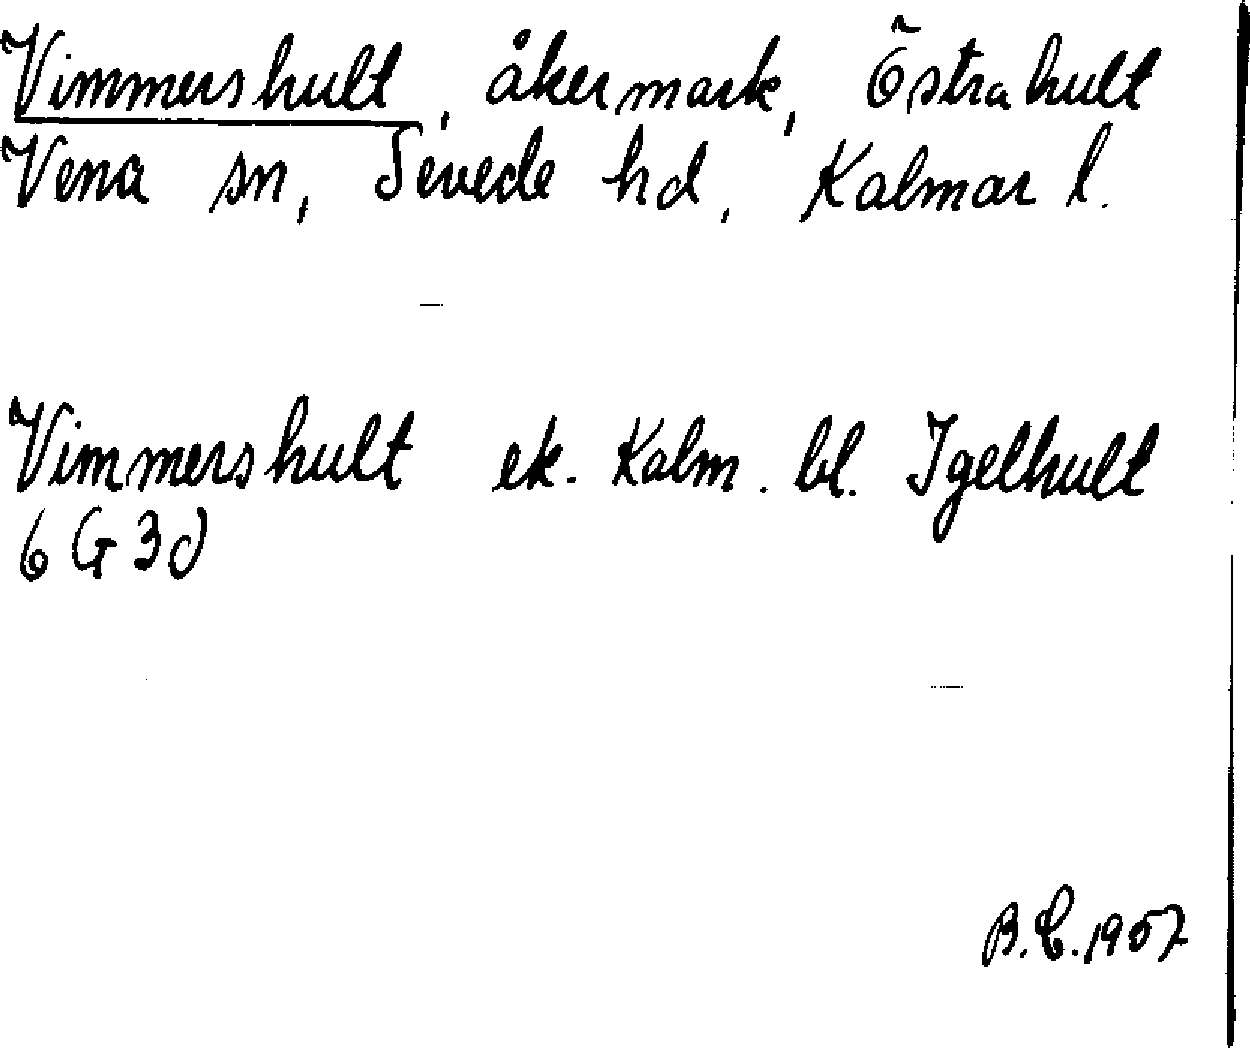 Vimmershult, åkermark, Östrahult
Vena sn, Sevede hd, Kalmar l.
Vimmershult ek. Kalm. bl. Igelhult
6 G 3 d
B.C. 1957